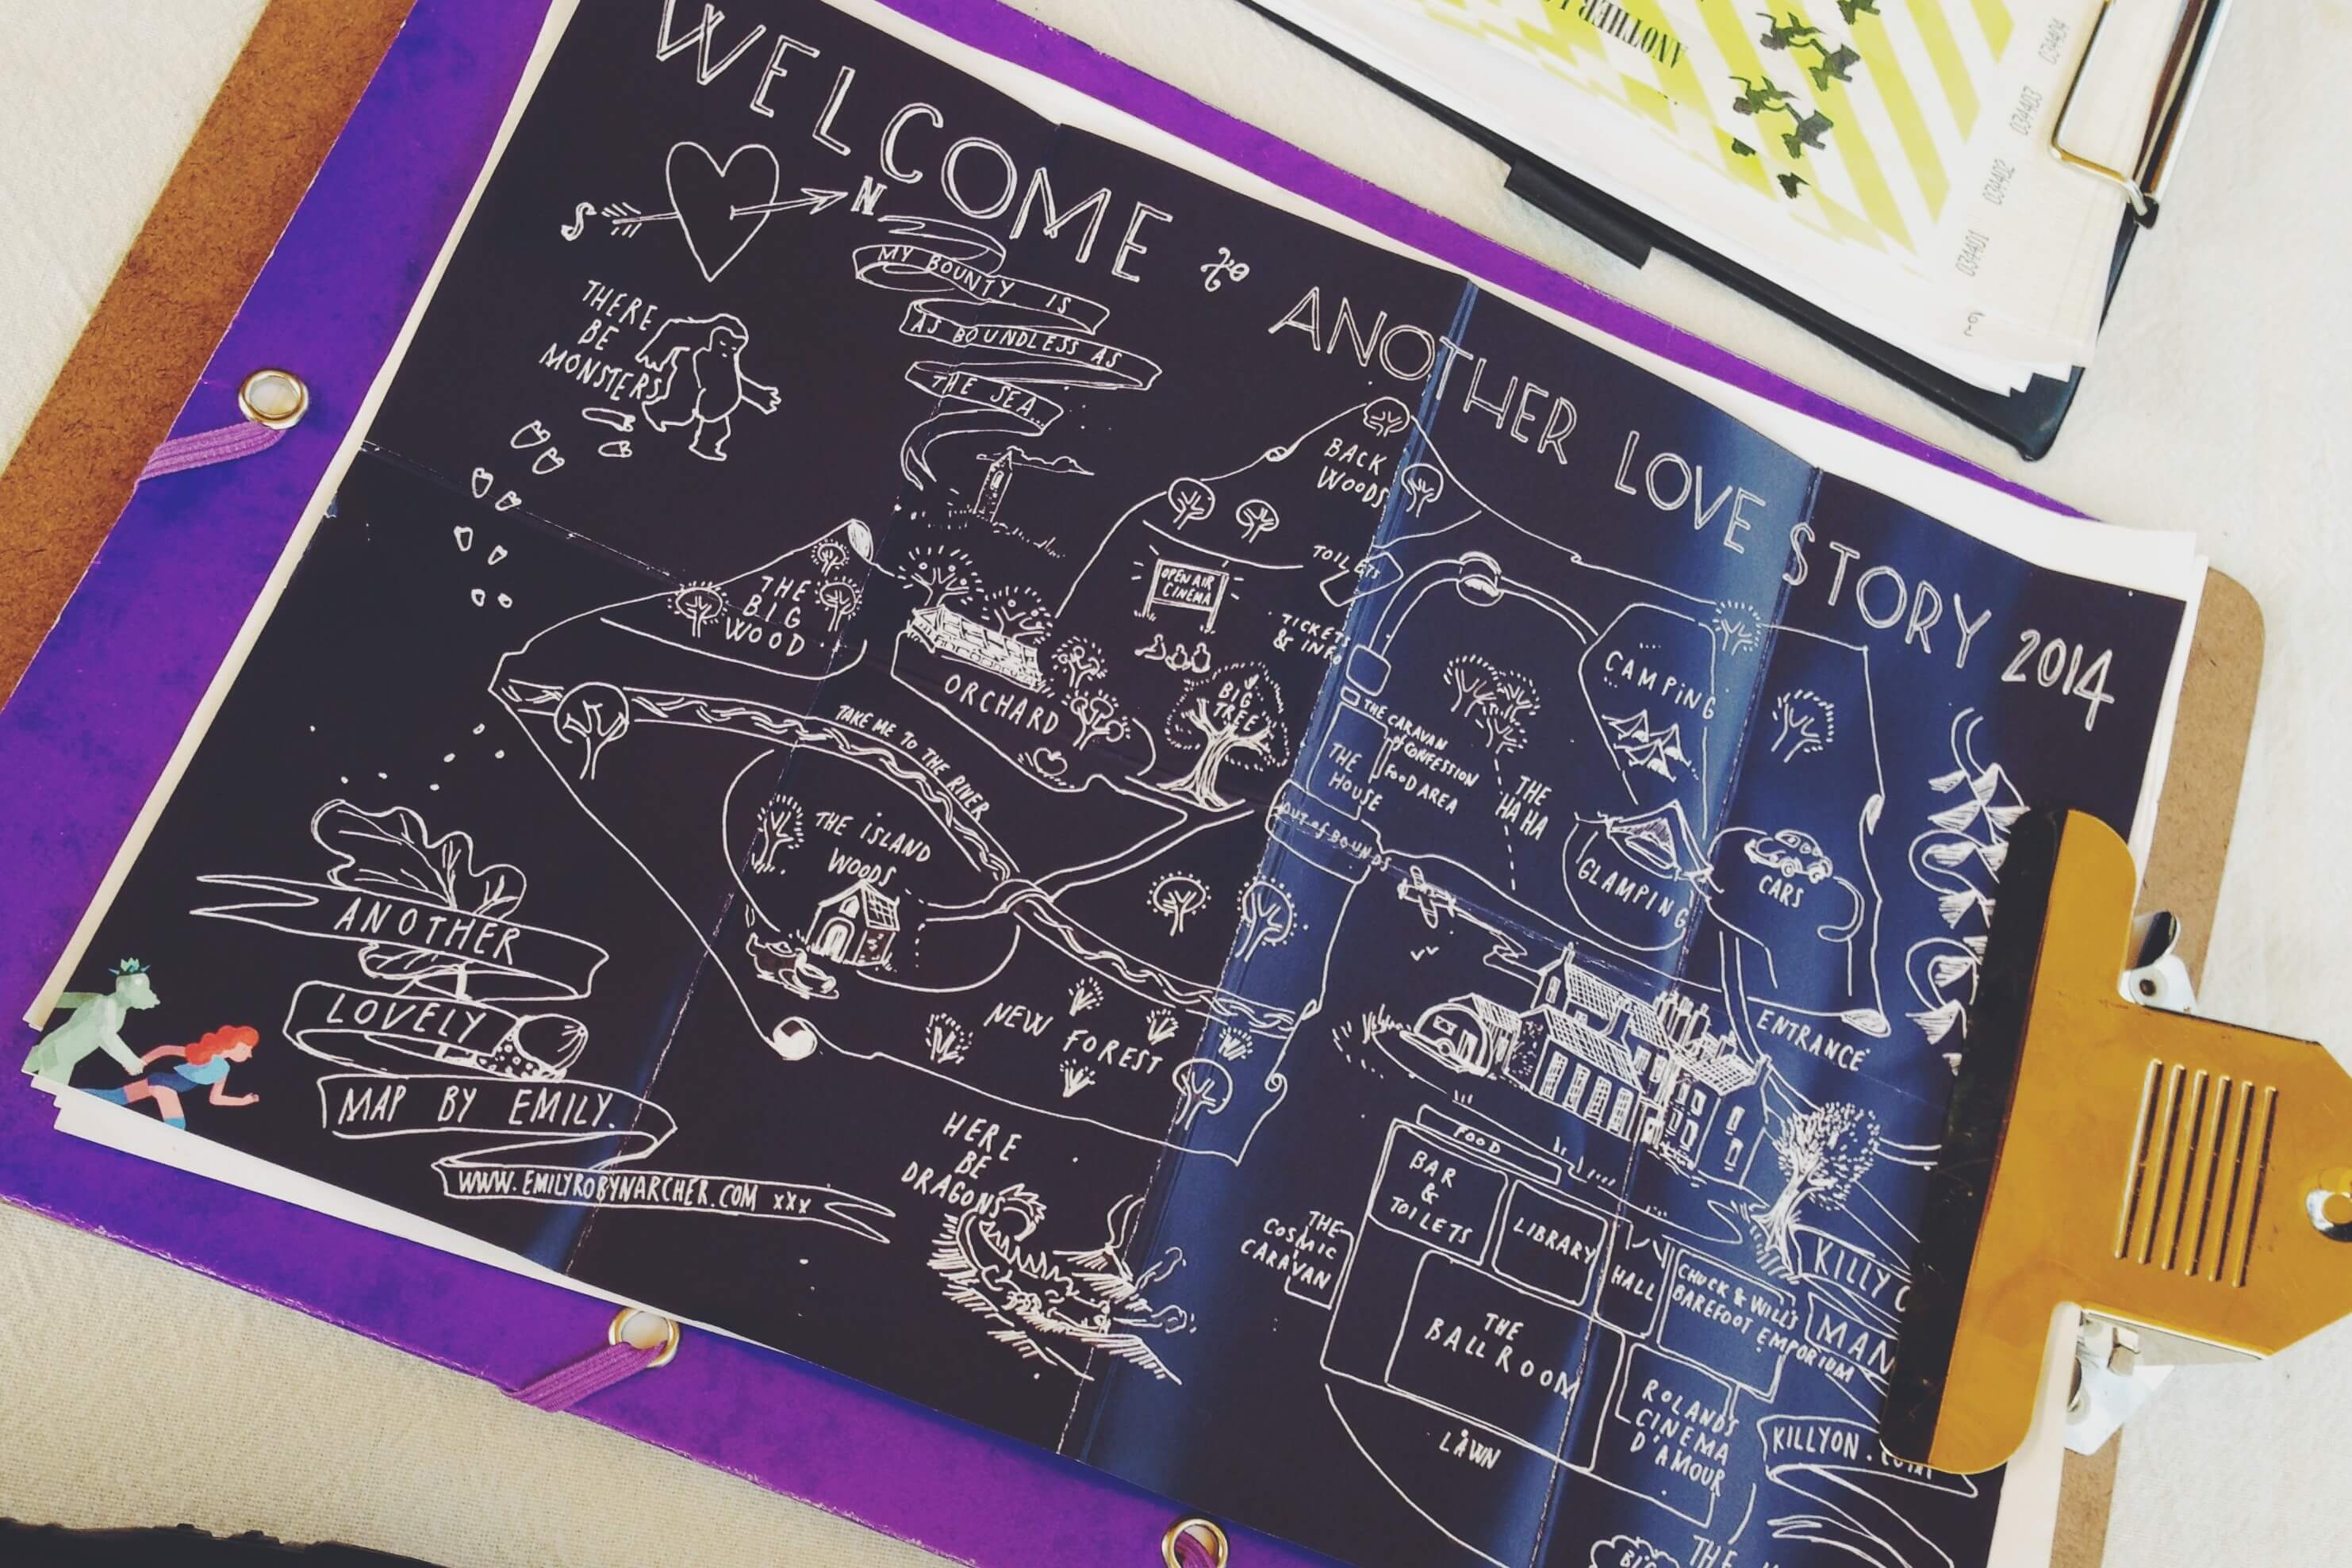 WELCOME to ANOTHER LOVE STORY 2014
S
N
MY BOUNTY IS
AS BOUNDLESS AS
THE SEA.
THERE
BE
MONSTERS
BACK
WOODS
TOILETS
OPEN AIR
CINEMA
TICKETS
& INFO
THE
BIG
WOOD
ORCHARD
BIG
TREE
TAKE ME TO THE RIVER
THE ISLAND
WOODS
THE CARAVAN
of CONFESSION
FOOD AREA
THE
HOUSE
OUT of BOUNDS
THE
HA HA
CAMPING
GLAMPING
CARS
ENTRANCE
NEW FOREST
ANOTHER
LOVELY
MAP BY EMILY.
WWW.EMILYROBYNARCHER.COM xxx
HERE
BE
DRAGONS
FOOD
BAR
&
TOILETS
LIBRARY
HALL
CHUCK & WILL'S
BAREFOOT EMPORIUM
THE
COSMIC
CARAVAN
THE
BALLROOM
ROLANDS
CINEMA
D'AMOUR
LAWN
KILLY
MAN
KILLYON.
BIG
THE
ANOTHER
034401
034402
034403
034404